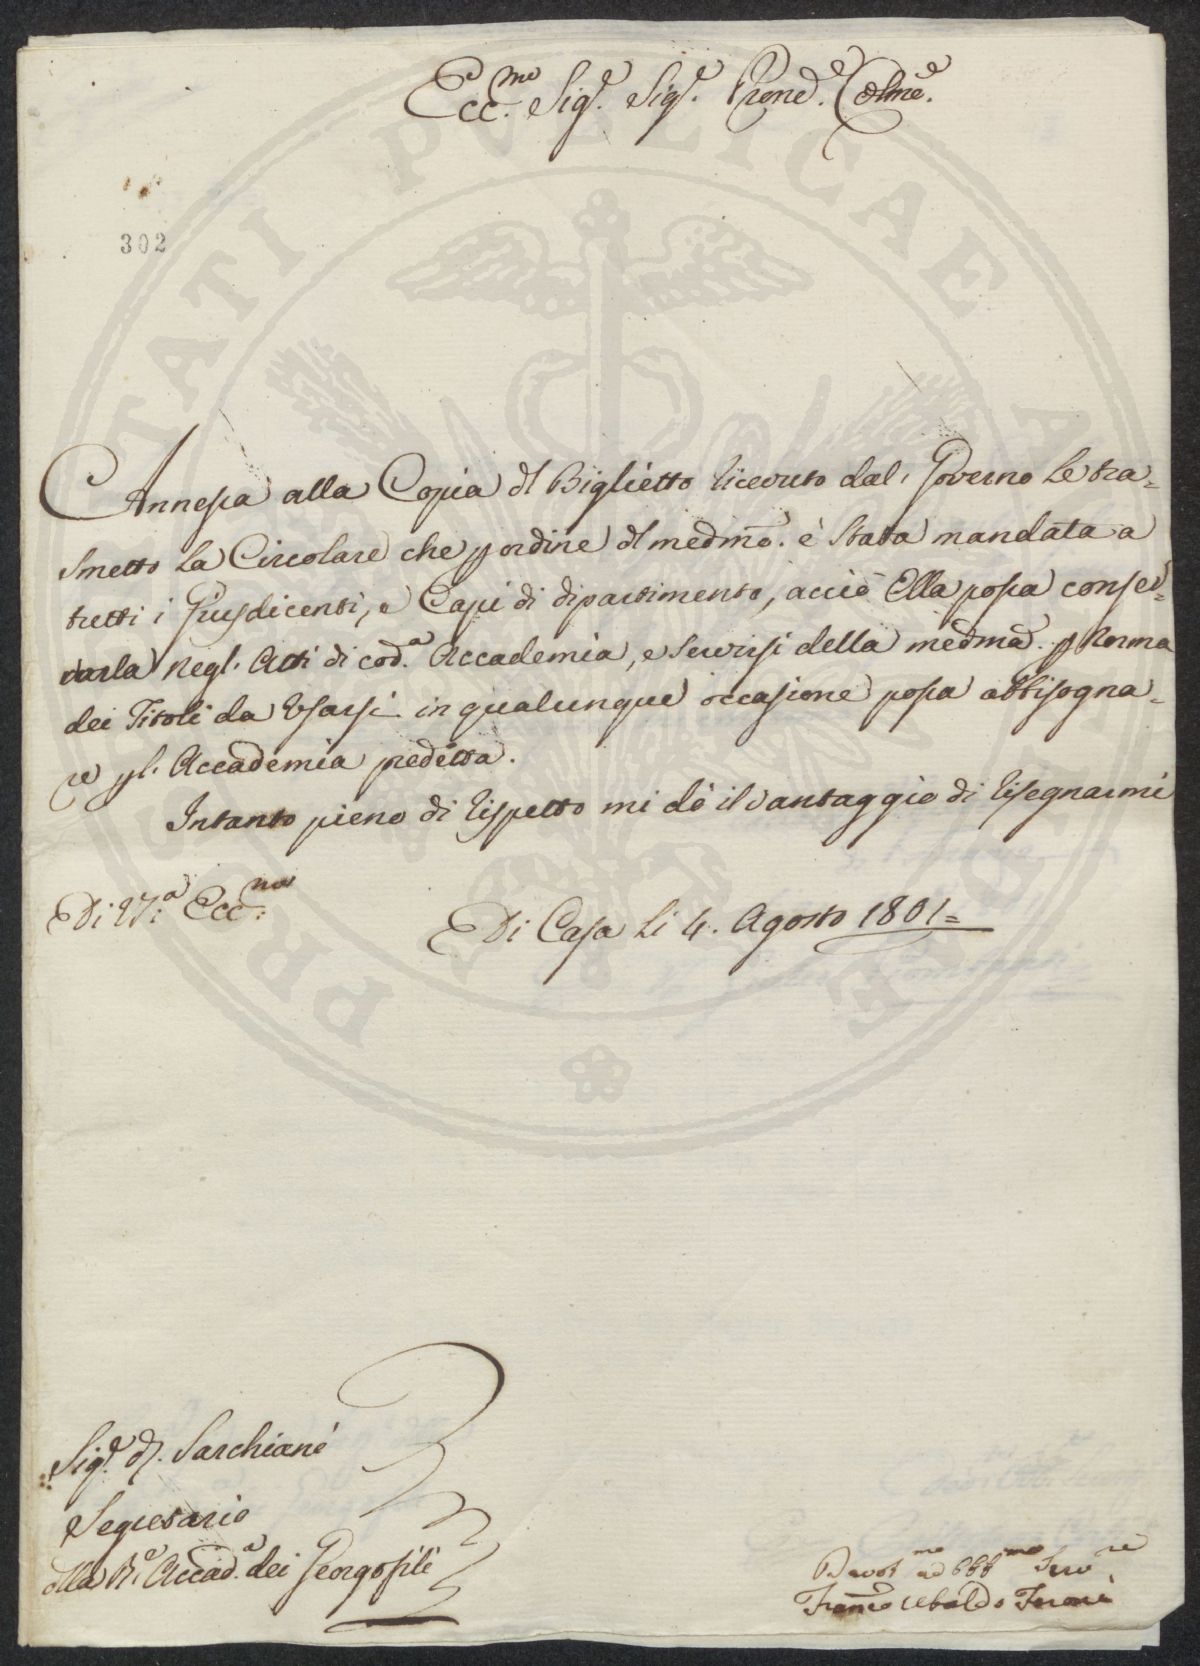 Ecc.mo Sig.e Sig.e Prone Colmo
302
Annessa alla Copia del Biglietto ricevuto dal Governo Le tra=
smetto La Circolare che p ordine del medmo. è stata mandata a
tutti i Giusdicenti, e Capi di dipartimento, acciò Ella possa conser=
varla negl. Atti di cod.a Accademia, e servirsi della medma. p Norma
dei Titoli da Usarsi in qualunque occasione possa abbisogna=
re pl. Accademia predetta.
Intanto pieno di rispetto mi dò il vantaggio di risegnarmi
Di V.a Ecc.ma
Di Casa Li 4. Agosto 1801=
Sig.e D. Sarchiani
Segretario
della R.e Accad.a dei Georgofili
Devot.mo ed Obb.mo Serv.re
Franco Ubaldo Feroni
PUBLICAE